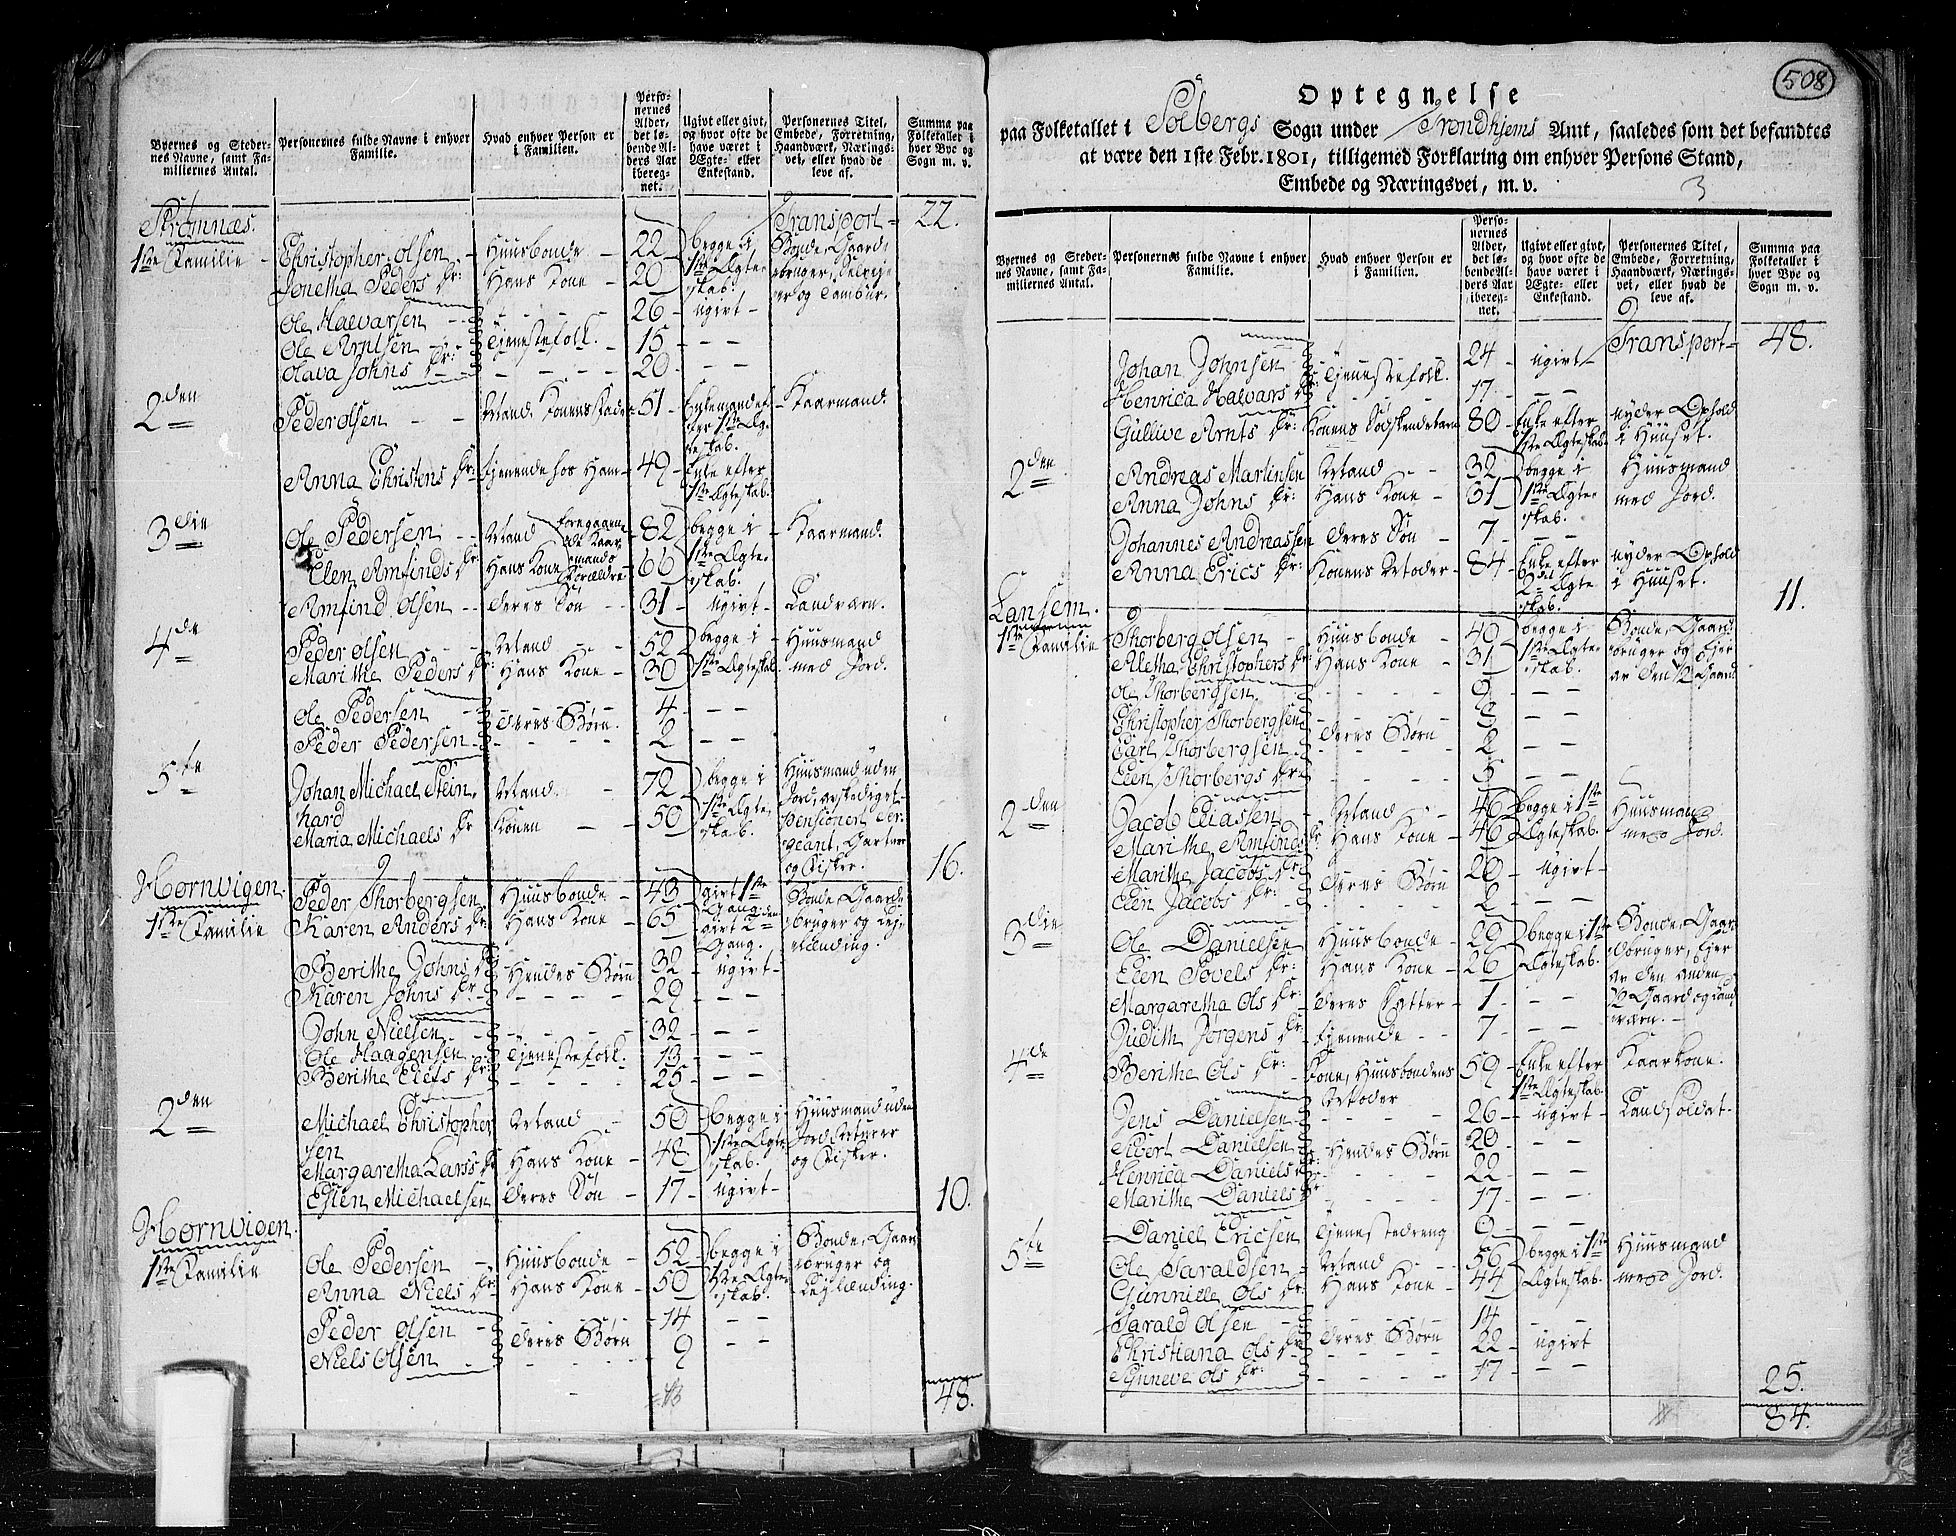 Byernes og Steder-
nes Navne, samt Fa-
miliernes Antal.
Personernes fulde Navne i enhver
Familie.
Hvad enhver Person er
i Familien.
Perso-
nernes
Alder,
det lø-
bende Al-
ders Aar
iberegnet.
Ugivt eller givt,
og hvor ofte de
have været i
Ægte- eller
Enkestand.
Personernes Titel,
Embede, Forretning,
Haandværk, Nærings-
vei, eller hvad de
leve af.
Summa paa
Folketallet i
hver Bye og
Sogn m. v.
Transport- 22.
Strømnæs.
1ste Familie - Christopher Olsen - Huusbonde - 22 begge i Bonde, Gaard-
Peders Dr: Hans Kone - 20 1ste Ægte- bruger,
skab. og Tambur.
Ole Halvarsen - 26 - ugivt -
Ole Arntsen - Tjenestefolk. 15 - - -
Olava Johns Dr: - 20 - - -
2den Peder Olsen - - Mand. Konens Fader 51 Enkemand ef- Kaarmand.
ter 1ste Æg-
teskab.
Anna Christens Dr: tjenende hos Ham - 49 - Enke efter
1ste Ægteskab.
3die Ole Pedersen - - Mand 82 begge i Kaarmand.
Elen Amfinds Dr: Hans Kone 66 1ste Ægte-
skab.
Amfind Olsen - - deres Søn - - 31 - ugivt - Landværn.
4de Peder Olsen - Mand - - 52 begge i Huusmand
Marithe Peders Dr: Hans Kone - 30 1ste Ægteskab. med Jord.
Ole Pedersen - deres Børn. 4 - - -
Peder Pedersen - 2 - - -
5te Johan Michael Stein- Mand. - 72 begge i Huusmand uden
hard 1ste Ægte- Jord, afskediget
Maria Michaels Dr Konen - - 50 skab. pensioneret Ser-
geant, Gartner
og Fisker. 16.
Hornvigen.
1ste Familie Peder Thorbergsen Huusbonde - 43 givt 1ste Bonde, Gaard-
Karen Anders Dr: Hans Kone - 65 Gang bruger og Lej-
givt 2den Gang. lænding.
Berithe Johns Dr Hendes Børn 32 - ugivt -
Karen Johns Dr - 29 - - -
John Nielsen - 32 - - -
Ole Haagensen - Tjenestefolk. 13 - - -
Berithe Elefs Dr: 25 - - -
2den Michael Christopher- Mand - 50 begge i Huusmand uden
sen 1ste Ægte- Jord
Margaretha Lars Dr Hans Kone - 48 skab. og Fisker.
Esten Michaelsen deres Søn - 17 - ugivt - 10.
Hornvigen.
1ste Familie Ole Pedersen - Huusbonde - 52 begge i Bonde, Gaard-
Anna Niels Dr: Hans Kone - 50 1ste Ægte- bruger og
skab. Lejlænding.
Peder Olsen - deres Børn 14 - -
Niels Olsen - 9 - -
48.
508
Optegnelse
paa Folketallet i Solbergs Sogn under Trondhjems Amt, saaledes som det befandtes
at være den 1ste Febr. 1801, tilligemed Forklaring om enhver Persons Stand,
Embede og Næringsvei, m. v. 3
Byernes og Steder-
nes Navne, samt Fa-
miliernes Antal.
Personernes fulde Navne i enhver
Familie.
Hvad enhver Person er
i Familien.
Perso-
nernes
Alder,
det lø-
bende Al-
ders Aar
iberegnet.
Ugivt eller givt,
og hvor ofte de
have været i
Ægte- eller
Enkestand.
Personernes Titel,
Embede, Forretning,
Haandværk, Nærings-
vei, eller hvad de
leve af.
Summa paa
Folketallet i
hver Bye og
Sogn m. v.
Transport- 48.
Johan Johnsen - Tjenestefolk. 24 - ugivt -
Henrica Halvars Dr 17 - - -
Gullive Arnts Dr: Konens Sødskendebarn 80 - Enke efter nyder Ophold
1ste Ægteskab. i Huuset.
2den Andreas Martinsen Mand - - 32 begge i Huusmand
Anna Johns Dr: Hans Kone - 31 1ste Ægte- med Jord.
skab.
Johannes Andreassen deres Søn - 7 - - -
Anna Erics Dr: Konens Moder - 84 - Enke efter nyder Ophold
2det Ægte- i Huuset.
skab. 11.
Lansem.
1ste Familie Thorberg Olsen - Huusbonde - 40 begge i Bonde, Gaard-
Aletha Christophers Dr: Hans Kone - 31 1ste Ægte- bruger og Ejer
skab. av den 1/2 Gaard
Ole Thorbergsen 9 - - -
Christopher Thorbergsen deres Børn - -
Carl Thorbergsen 2 - - -
Elen Thorbergs Dr: 5 - - -
2den Jacob Eliassen - Mand - 46 begge i 1ste Huusmand
Marithe Amfinds Dr Hans Kone - 46 Ægteskab. med Jord.
Marithe Jacobs Dr deres Børn 20 - ugivt -
Elen Jacobs Dr: 2 - - -
3die Ole Danielsen Huusbonde - 29 begge i 1ste Bonde, Gaar-
Elen Povels Dr: Hans Kone - 26 Ægteskab. dbruger, Ejer
av den anden
Margaretha Ols Dr: deres Datter - 1 - - - 1/2 Gaard og Land-
værn. -
Judith Jørgens Dr: tjenende - - 7 - - -
4de Berithe Ols Dr: - Kone, Huusbondens 59 Enke efter Kaarkone.
Moder 1ste Ægteskab.
Jens Danielsen 26 - ugivt - Landsoldat.
Sivert Danielsen - Hendes Børn 20 - -
Henrica Daniels Dr 22 - - -
Marithe Daniels Dr 17 - - -
Daniel Ericsen Tjenestedreng 9 - - -
5te Ole Taraldsen - Mand - 56 begge i 1ste Huusmand
Gunnille Ols Dr: Hans Kone - 44 Ægteskab. med Jord.
Tarald Olsen - deres Børn 14 - - -
Christiana Ols Dr 22 - ugivt
Guneve Ols Dr: 17 - - -
25.
84.